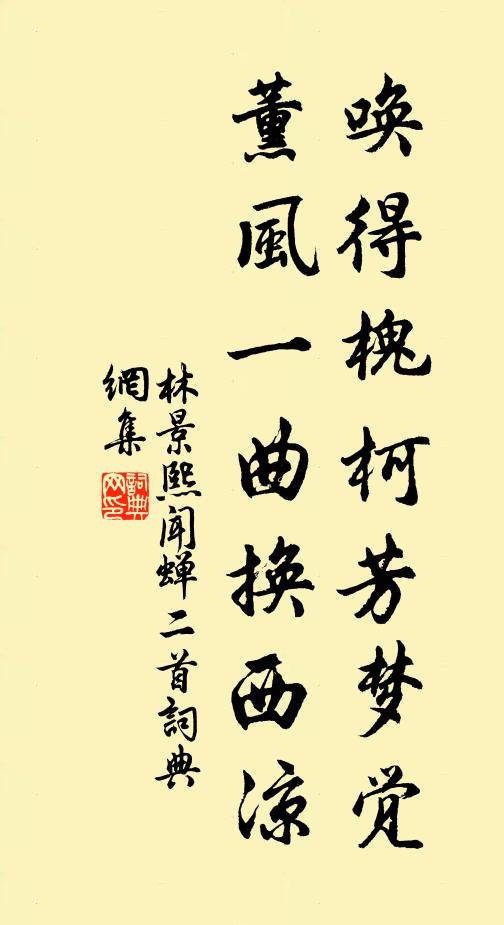 唤得槐柯芳梦觉
薰風一曲換西涼
林景熙闻蝉二首詞典
網集
詞典
网印